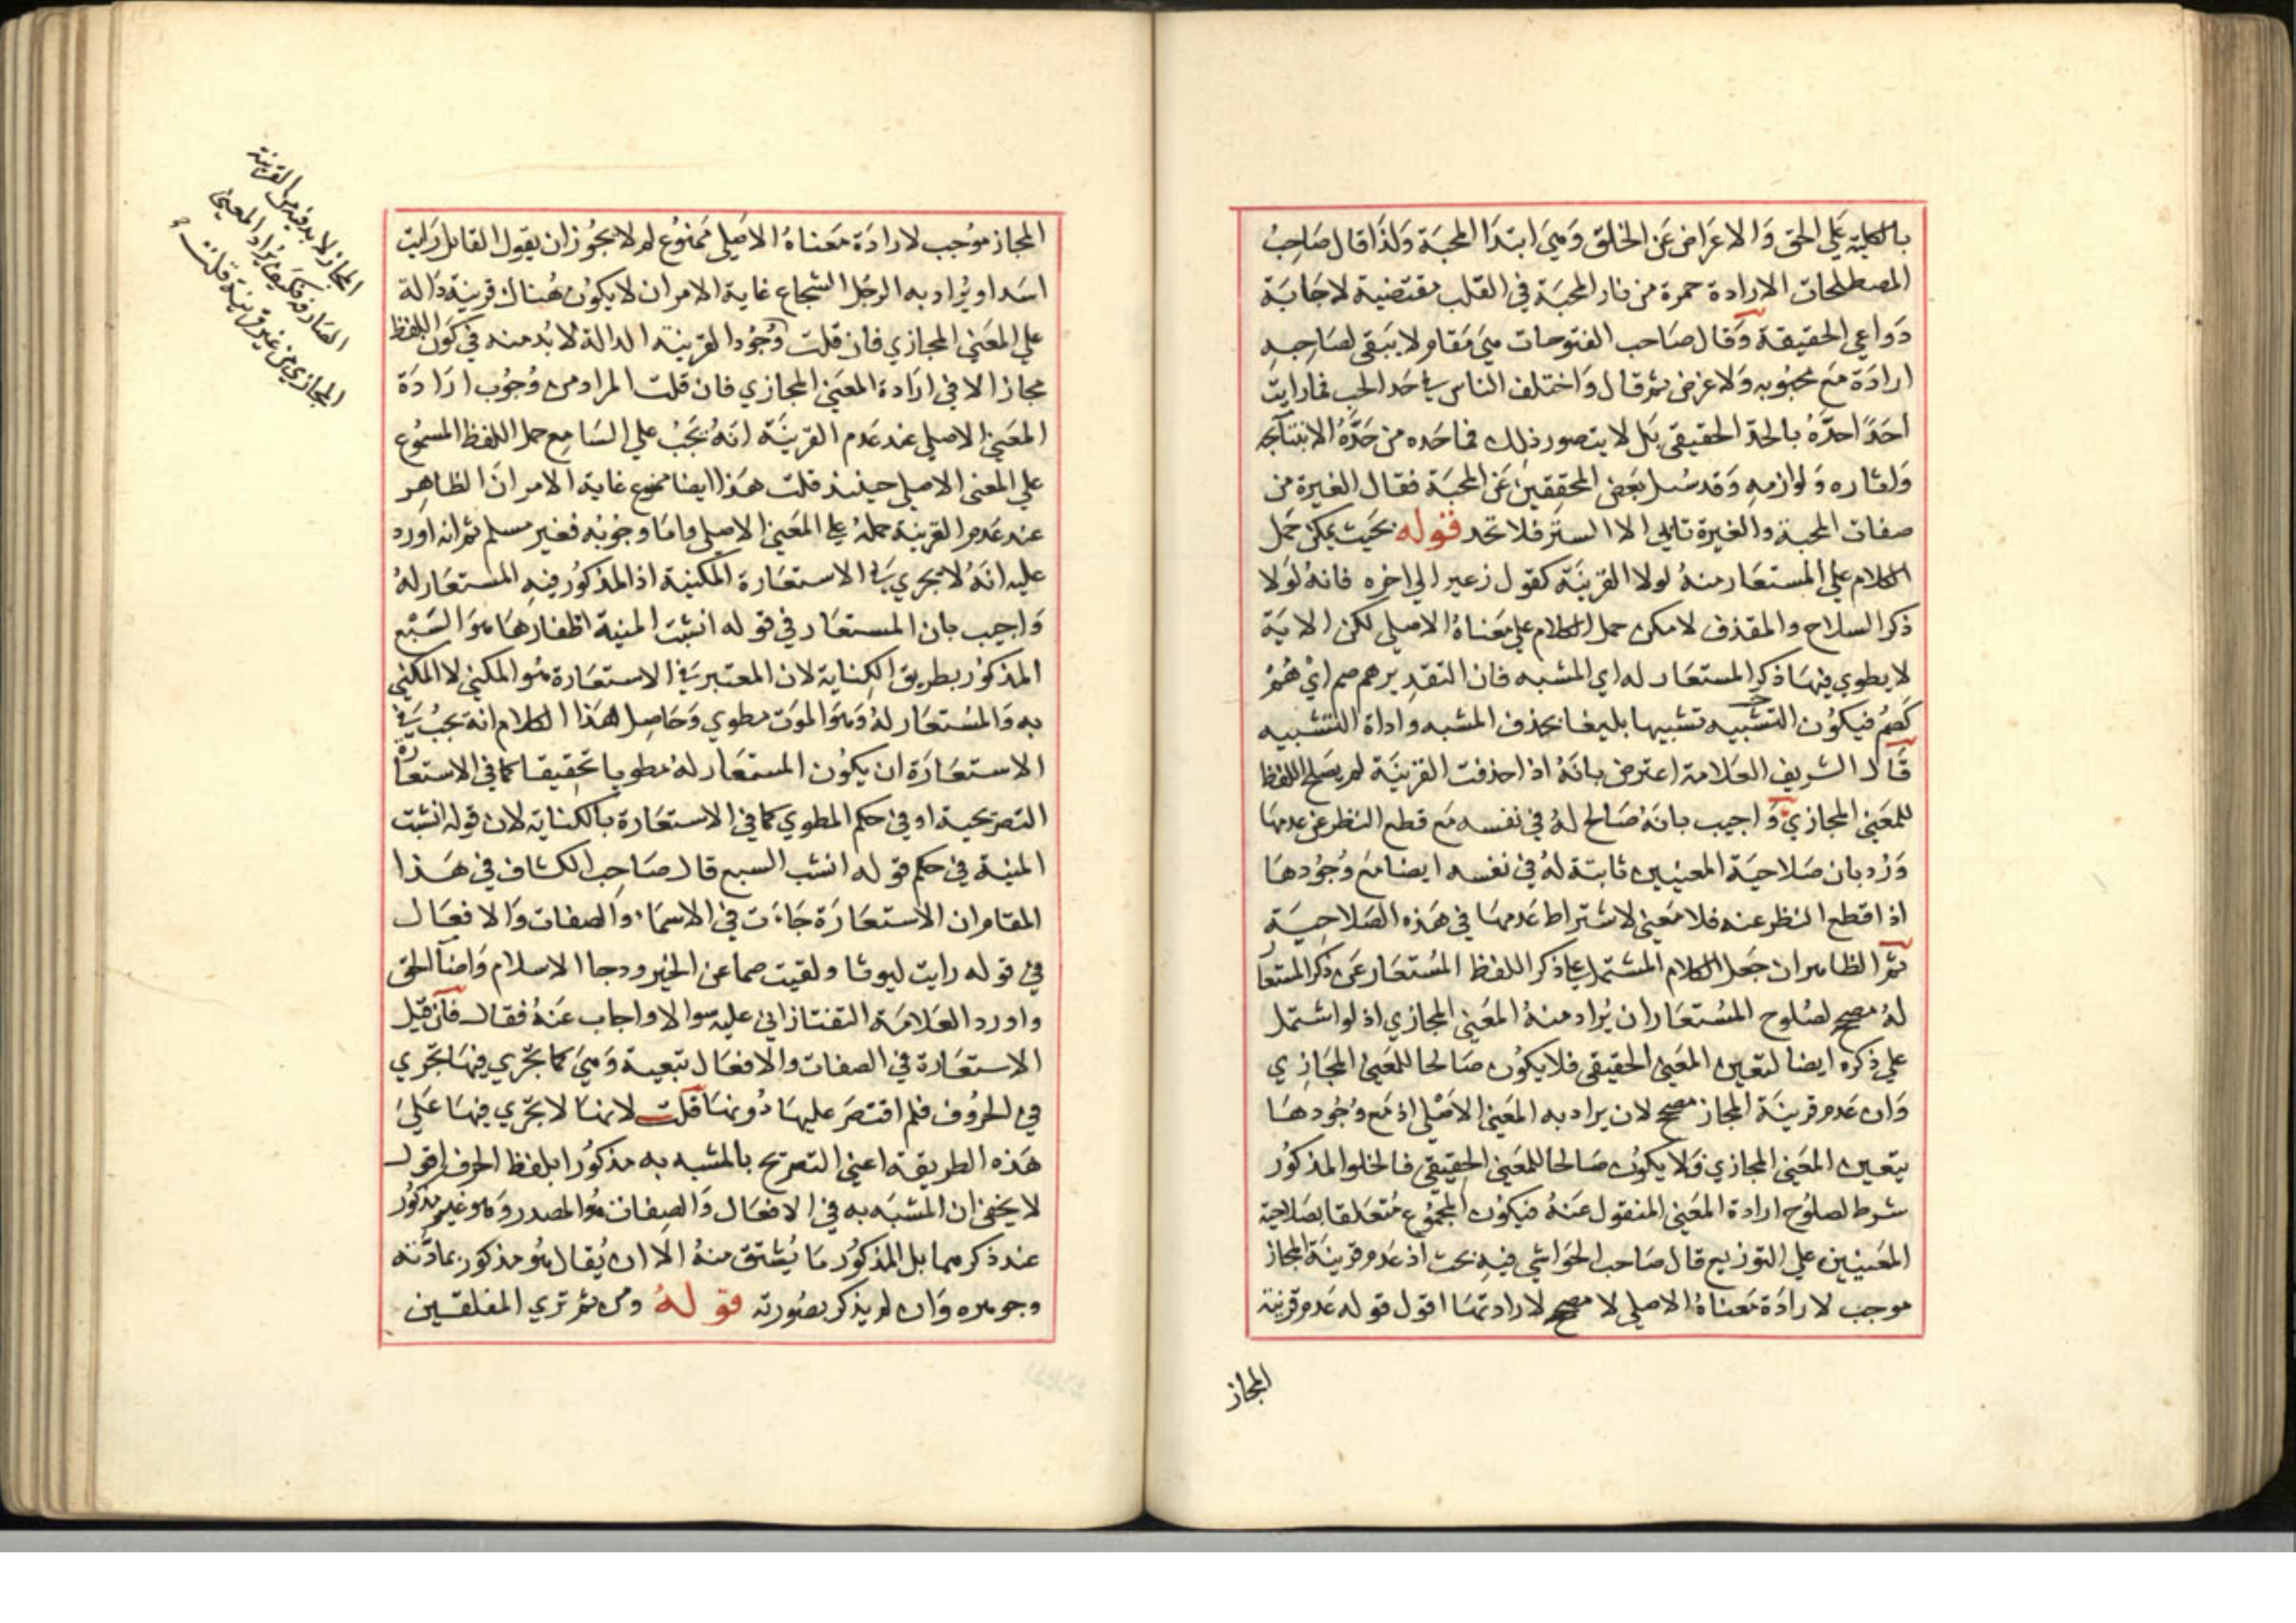 بالكلية على الحق وَالاعرَاض عَن الخلق وَهيَ ابتدَا المحبَة وَلذَا قال صَاحِبُ
المصطلحات الارادة جمرة من نار المحبَة في القلب مقتضية لاجَابَة
دَواعي الحقيقة وَقال صَاحب الفتوحات هيَ مَقام لا يَبقى لصَاحِبهِ
ارادَة مَع محبُوبه وَلا غرض ثم قال وَاختلف الناس في حَد الحب فما رايت
احَدًا حدَّهُ بالحد الحقيقي بَل لا يتصور ذلك فما حَده من حَدَّهُ الا بنتآئجه
وَاثاره وَلوازمهِ وَقد سُئل بَعض المحققِين عَن المحبَة فقال الغيرة من
صفات المحبة والغيرة تابى الا الستر فلا تحد قوله بحَيث يمكن حَمل
الكلام على المستعَار منهُ لولا القرينَة كقول زهير الى اخره فانهُ لَولا
ذكر السلاح والمقذف لامكن حمل الكلام على مَعَناهُ الاصلي لكن الايَة
لا يطوي فيهَا ذكر المستعَار له اي المشبه فان التقدير هم صم ايْ هُمْ
كَصُمْ فيكوُن التشبيه تشبيها بليغا بحذف المشبه واداة التشبيه
قَال الشريف العَلامة اعترض بانَهُ اذا حذفت القرينَة لم يَصلح اللفظ
للمعَنى المجازي وَاجيب بانَهُ صَالح لهُ في نفسه مَع قطع النظر عن عدمهَا
وَرُد بان صَلاحيَة المعنيين ثابتة لهُ في نفسه ايضا مَع وُجُودهَا
اذا قطع النظر عنه فلا مَعنى لاشتراط عَدمهَا في هَذه الصَلاحيَة
ثمَّ الظاهر ان جَعل الكلام المشتمل على ذكر اللفظ المُستعَار عَن ذكر المستعار
لهُ مصحح لصُلوح المُستعَار ان يُراد منهُ المعَنى المجازي اذ لو اشتمل
على ذكره ايضا لتعَين المَعنى الحقيقي فلا يكوُن صَالحا للمعَنى المجَازي
وَان عَدم قرينَة المجاز مصحح لان يراد به المعَنى الاصَلي اذ مَع وُجُودهَا
يتعَين المعَنى المجازي وَلا يكوُن صَالحا للمعَنى الحقِيقي فالخلو المذكوُر
شرط لصلوُح ارادة المعَنى المنقول عَنهُ فيكوُن المجمُوع مُتعَلقا بصَلاحية
المعَنيَين على التوزيع قال صَاحب الحَواشي فيهِ بَحث اذ عَدم قرينَة المجاز
موجب لارادَة مَعناهُ الاصلي لا مصحح لارادتهَا اقول قوله عَدم قرينة
المجاز
المجاز موُجب لارادَة مَعناهُ الاصَلي ممَنوُع لم لا يجُوز ان يقول القائل رَايت
اسَدا ويُراد به الرجُل الشجاع غاية الامر ان لا يكوُن هُناك قرينة دَالة
على المعَنى المجازي فان قلت وُجُود القرينة الدالة لا بُد منه في كوَن اللفظ
مجازا لا في ارَادة المعَنى المجازي فان قلت المراد من وُجُوب ارَادَة
المعَنى الاصلي عند عَدم القرينَة انَهُ يَجَبُ على السَامع حمل اللفظ المسمُوع
على المعنى الاصلي حينئذ قلت هَذا ايضا ممنوع غاية الامر انَ الظاهِر
عند عَدم القرينَة حملهُ على المعَنى الاصلي واما وجوبُه فغير مسلم ثم انه اورد
عليه انَهُ لا يجري في الاستعَارة المكنية اذ المذكوُر فيهِ المستعَار لهُ
وَاجيب بان المستعَار في قوله انشبَت المنية اظفارهَا هوَ السَبُع
المذكوُر بطريق الكِناية لان المعتبر في الاستعَارة هُو المكني لا المكني
به وَالمسُتعَار لهُ وَهوَ الموَت مطوي وَحَاصِل هَذا الكلام انه يجبُ في
الاستعَارَة ان يكوُن المستعَار لهُ مطويا تحَقيقا كما في الاستعارة
التصريحية او في حكم المطوي كما في الاستعَارة بالكناية لان قوله انشبت
المنية في حكم قوله انشب السبع قال صَاحِب الكشاف في هَذا
المقام ان الاستعَارَة جَاءَت في الاسمَاء وَالصفات وَالافعَال
في قوله رايت ليوثا ولقيت صما عن الخير ودجا الاسلام وَاضآ الحَق
واورد العَلامَة التفتازاني عليه سوالا واجاب عَنهُ فقال فآن قيل
الاستعَارة في الصفات والافعَال تبعية وَهيَ كما تجَري فيهَا تجَري
في الحرُوف فلم اقتصَر عليهَا دُونهَا قلت لانهَا لا تجَري فيهَا عَلىَ
هَذه الطريقة اعني التصريح بالمشبه به مذكوُرا بلفظ الحرف اقول
لا يخفى ان المشبَه به في الافعَال وَالصِفات هُو المصدر وَهو غير مذكوُر
عند ذكرهما بل المذكوُر مَا يُشتق منهُ الّا ان يُقال هُو مذكور بمادَّته
وجوهره وَان لم يذكر بصُورته قولهُ ومن ثم تري المفلقين
المجاز لا بد فيه من القرينة
الصَارفة فكيف يُراد المعنى
المجازي من غير قرينة قلت